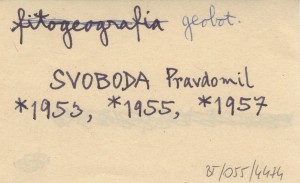 fitogeografia geobot.
SVOBODA Pravdomil
*1953, *1955, *1957
/055/4474